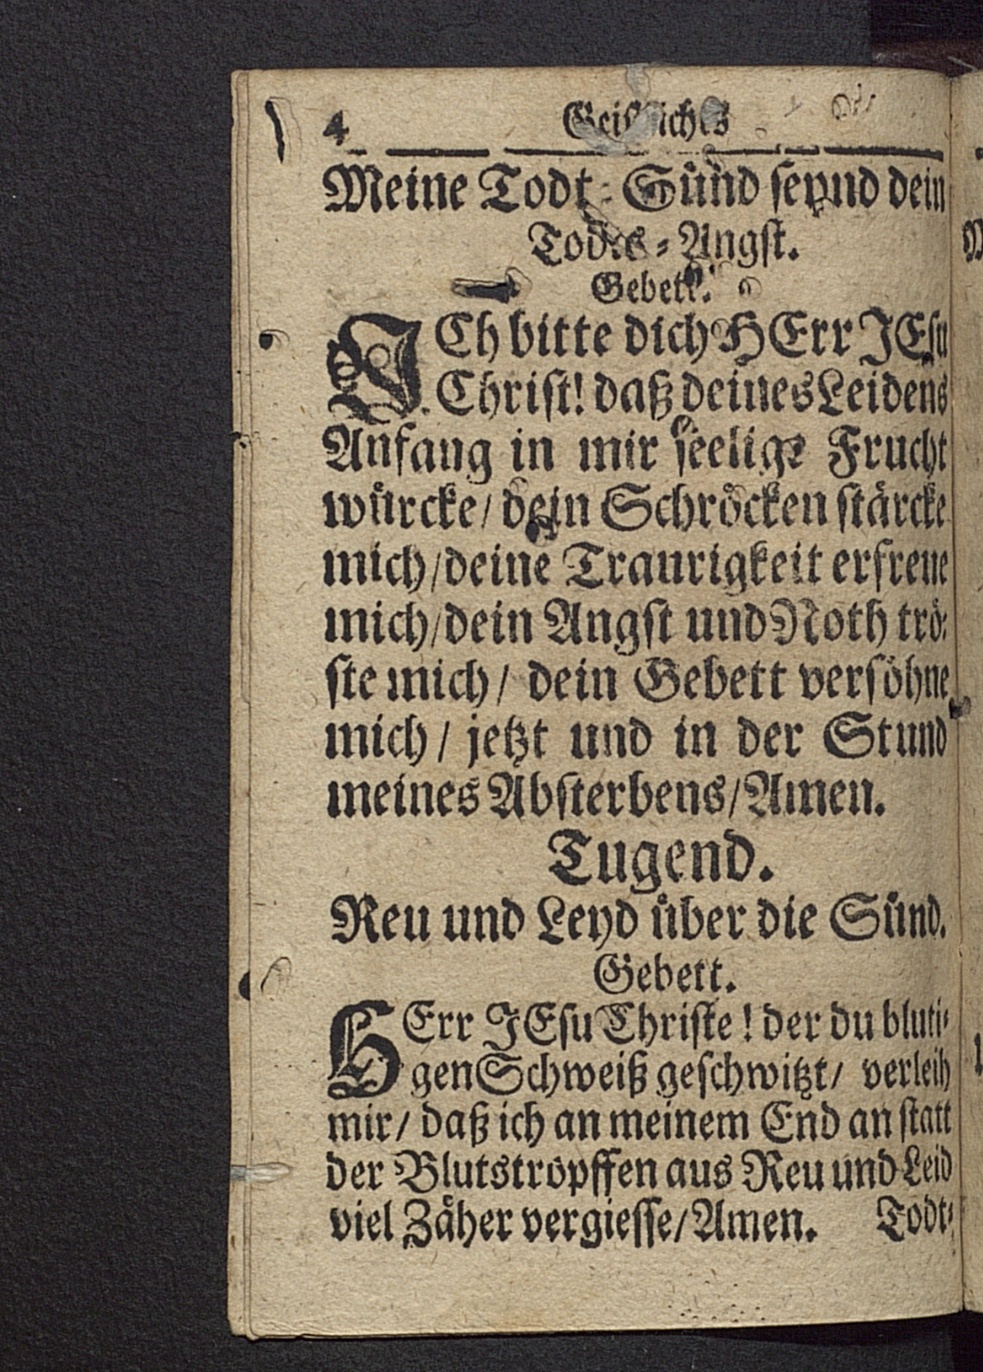 4 Geistliches
Meine Todt-Sünd seynd dein
Todes-Angst.
Gebett.
ICh bitte dich HErr JEsu
Christ! daß deines Leidens
Anfang in mir seelige Frucht
würcke/ dein Schröcken stärcke
mich/ deine Traurigkeit erfreue
mich/ dein Angst und Noth trö-
ste mich/ dein Gebett versöhne
mich/ jetzt und in der Stund
meines Absterbens/ Amen.
Tugend.
Reu und Leyd über die Sünd.
Gebett.
HErr JEsu Christe! der du bluti-
gen Schweiß geschwitzt/ verleih
mir/ daß ich an meinem End an statt
der Blutstropffen aus Reu und Leid
viel Zäher vergiesse/ Amen. Todt-